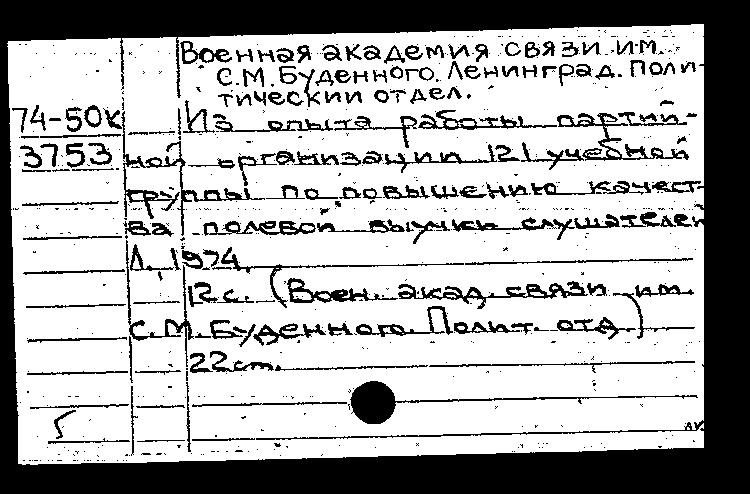 Военная академия связи им.
С.М. Буденного. Ленинград. Поли-
тический отдел.
74-50к Из опыта работы партий-
3753 ной организации 121 учебной
группы по повышению качест-
ва полевой выучки слушателей
Л., 1974.
12 с. (Воен. акад. связи им.
С.М. Буденного. Полит. отд)
22 см.